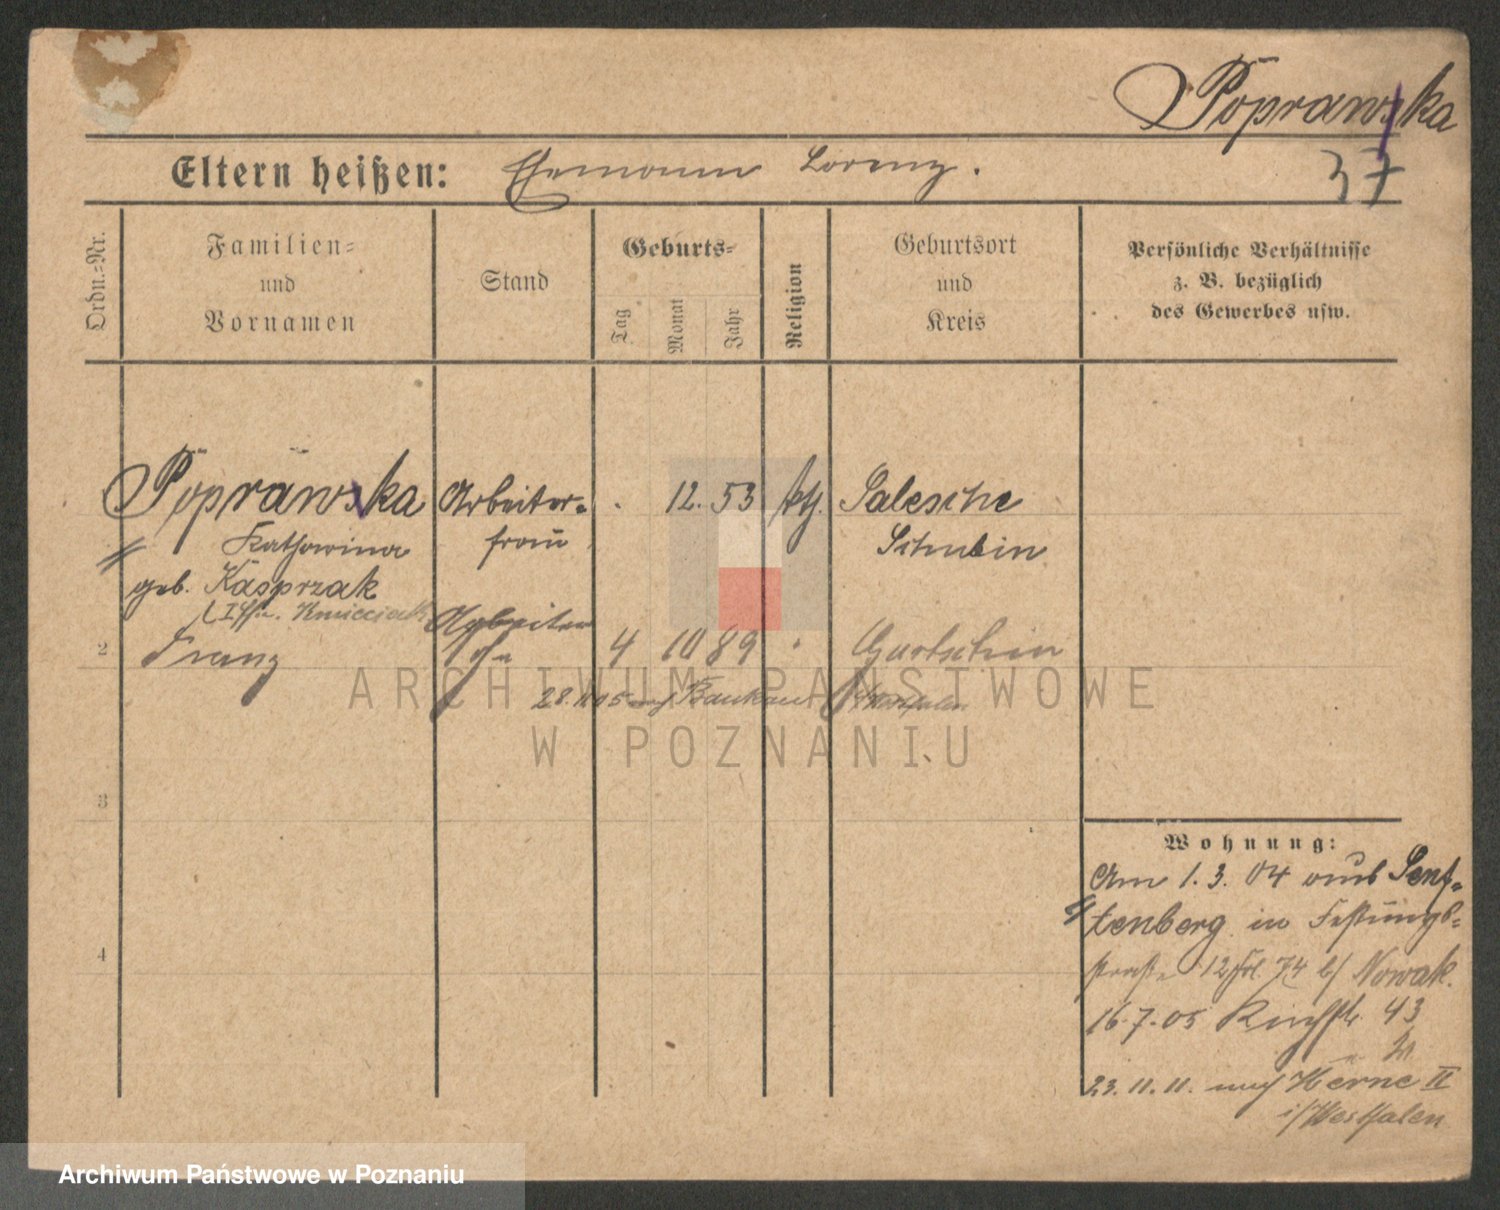 Poprawska
Eltern heißen: Ehemann Lorenz.
37
Ordn.-Nr.
Familien-
und
Vornamen
Stand
Geburts-
Tag
Monat
Jahr
Religion
Geburtsort
und
Kreis
Persönliche Verhältnisse
z. B. bezüglich
des Gewerbes usw.
Poprawska Arbeiter- . 12. 53 kth. Salesche
Katharina frau Schubin
geb. Kasprzak
Kmieciak
2 Franz Arbeiter 4 10 89 " Gurtschin
28. 11 05 nach Baukau Westfalen
3
4
Wohnung:
Am 1. 3. 04 aus Senf-
tenberg in Festungs-
straße 12 74 b/ Nowak.
16. 7. 05 Kirchstr. 43
23. 11. 11. nach Herne II
i/Westfalen
ARCHIWUM PAŃSTWOWE
W POZNANIU
Archiwum Państwowe w Poznaniu